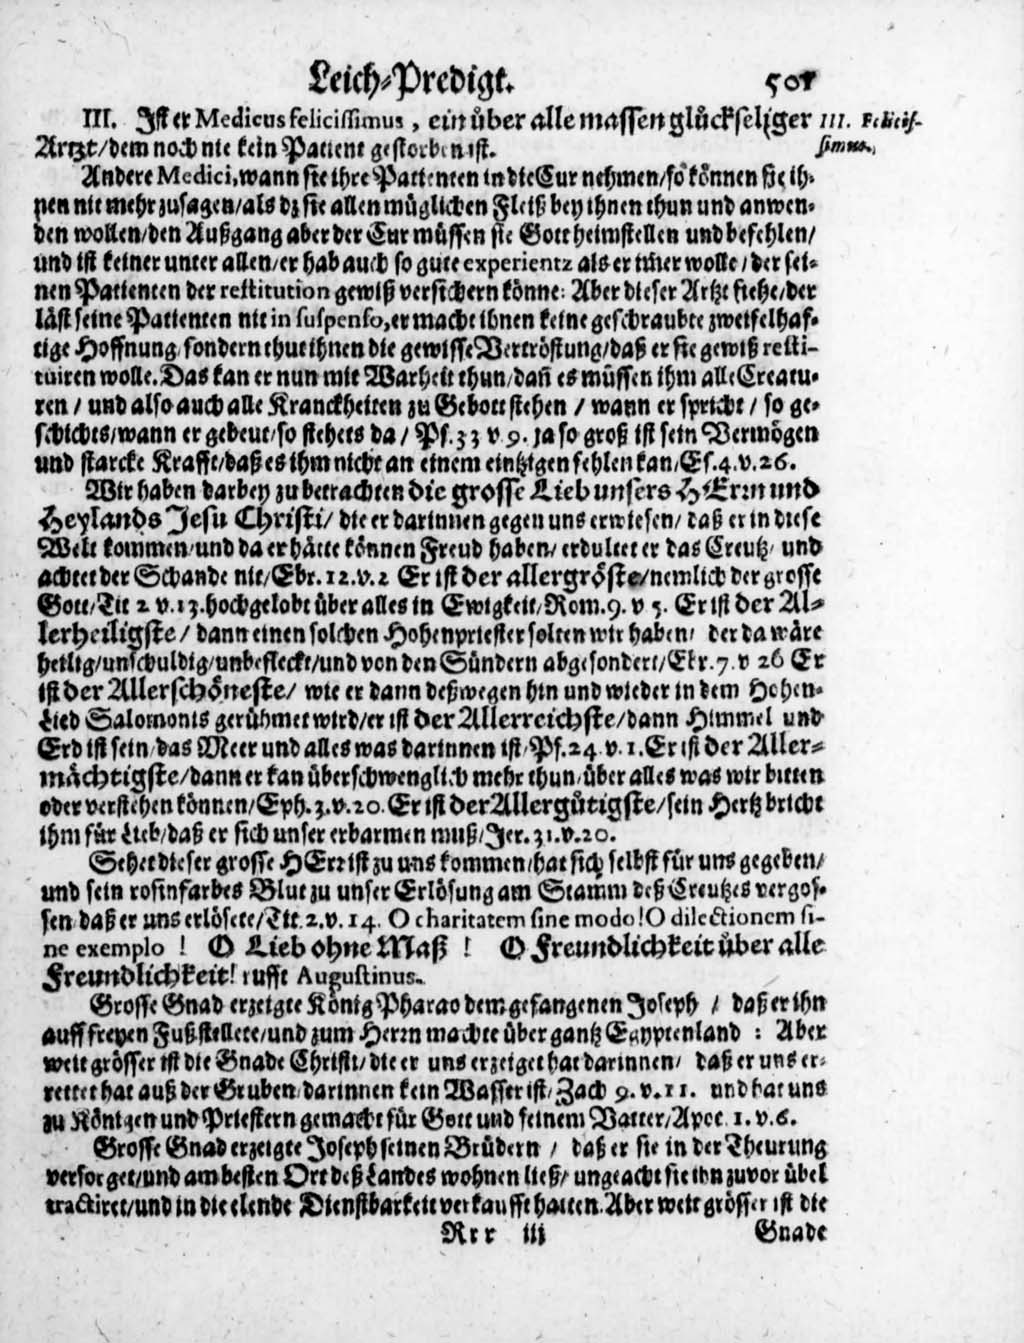 Leich-Predigt. 501
III. Jst er Medicus felicissimus, ein über alle massen glückseliger III. Felicis-
Artzt/dem noch nie kein Patient gestorben ist. simus.
Andere Medici, wann sie ihre Patienten in die Cur nehmen/so können sie ih-
nen nie mehr zusagen/als dz sie allen müglichen Fleiß bey ihnen thun und anwen-
den wollen/den Außgang aber der Cur müssen sie Gott heimstellen und befehlen/
und ist keiner unter allen/er hab auch so gute experientz als er im̃er wolle/der sei-
nen Patienten der restitution gewiß versichern könne: Aber dieser Artzt siehe/der
läst seine Patienten nie in suspenso, er macht ihnen keine geschraubte zweifelhaf-
tige Hoffnung/sondern thut ihnen die gewisse Vertröstung/daß er sie gewiß resti-
tuiren wolle. Das kan er nun mit Warheit thun/dañ es müssen ihm alle Creatu-
ren / und also auch alle Kranckheiten zu Gebott stehen / wann er spricht / so ge-
schichts/wann er gebeut/so stehets da / Ps. 33 v 9. ja so groß ist sein Vermögen
und starcke Krafft/daß es ihm nicht an einem eintzigen fehlen kan/Es. 4. v. 26.
Wir haben darbey zu betrachten die grosse Lieb unsers HErrn und
Heylands Jesu Christi/ die er darinnen gegen uns erwiesen/ daß er in diese
Welt kommen/und da er hätte können Freud haben/ erdultet er das Creutz/ und
achtet der Schande nit/Ebr. 12. v. 2 Er ist der allergröste/nemlich der grosse
Gott/Tit 2 v. 13. hochgelobt über alles in Ewigkeit/Rom. 9. v 5. Er ist der Al-
lerheiligste/ dann einen solchen Hohenpriester solten wir haben/ der da wäre
heilig/unschuldig/unbefleckt/und von den Sündern abgesondert/Ebr. 7. v 26 Er
ist der Allerschöneste/ wie er dann deßwegen hin und wieder in dem Hohen-
Lied Salomonis gerühmet wird/er ist der Allerreichste/dann Himmel und
Erd ist sein/das Meer und alles was darinnen ist/Ps. 24 v. 1. Er ist der Aller-
mächtigste/dann er kan überschwenglich mehr thun/über alles was wir bitten
oder verstehen können/Eph. 3. v. 20. Er ist der Allergütigste/sein Hertz bricht
ihm für Lieb/daß er sich unser erbarmen muß/Jer. 31. v. 20.
Sehet dieser grosse HErr ist zu uns kommen/hat sich selbst für uns gegeben/
und sein rosinfarbes Blut zu unser Erlösung am Stamm deß Creutzes vergos-
sen/daß er uns erlösete/Tit. 2. v. 14. O charitatem sine modo! O dilectionem si-
ne exemplo ! O Lieb ohne Maß ! O Freundlichkeit über alle
Freundlichkeit! rufft Augustinus.
Grosse Gnad erzeigte König Pharao dem gefangenen Joseph / daß er ihn
auff freyen Fuß stellete/und zum Herrn machte über gantz Egyptenland : Aber
weit grösser ist die Gnade Christi/die er uns erzeiget hat darinnen/ daß er uns er-
rettet hat auß der Gruben/darinnen kein Wasser ist/Zach 9. v. 11. und hat uns
zu Königen und Priestern gemacht für Gott und seinem Vatter/Apoc. 1. v. 6.
Grosse Gnad erzeigte Joseph seinen Brüdern / daß er sie in der Theurung
versorget/und am besten Ort deß Landes wohnen ließ/ ungeacht sie ihn zuvor übel
tractiret/und in die elende Dienstbarkeit verkaufft hatten. Aber weit grösser ist die
Rrr iij Gnade